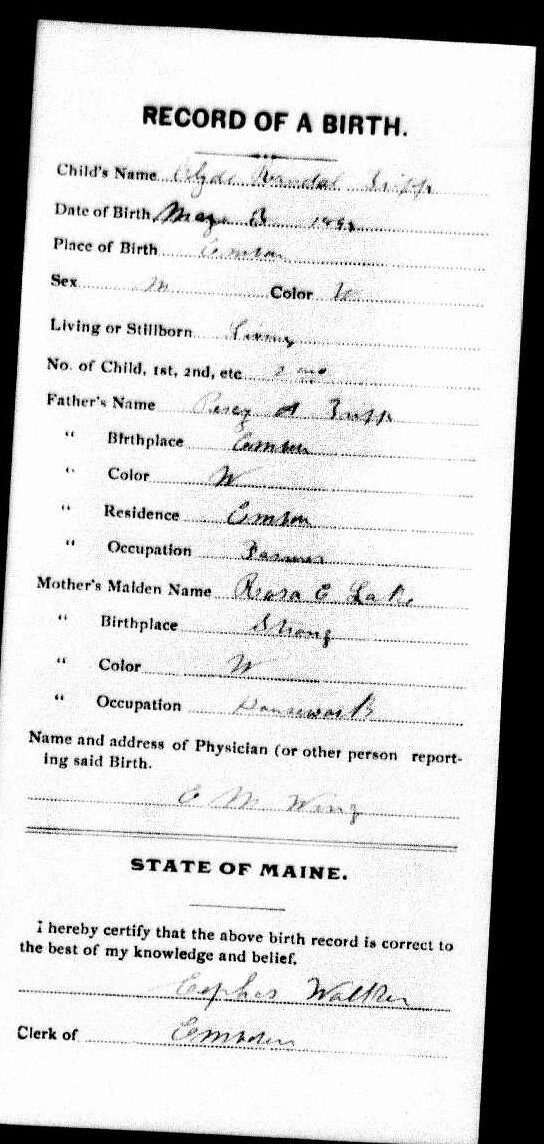 RECORD OF A BIRTH.
Child's Name Clyde Randal Tripp
Date of Birth May 3 189
Place of Birth Emden
Sex M Color W
Living or Stillborn Living
No. of Child, 1st, 2nd, etc 2nd
Father's Name Percy A Tripp
" Birthplace Emden
" Color W
" Residence Emden
" Occupation Farmer
Mother's Maiden Name Rosa E Lake
" Birthplace Strong
" Color W
" Occupation Housework
Name and address of Physician (or other person report-
ing said Birth.
C M Wing
STATE OF MAINE.
I hereby certify that the above birth record is correct to
the best of my knowledge and belief.
Cephas Walker
Clerk of Embden